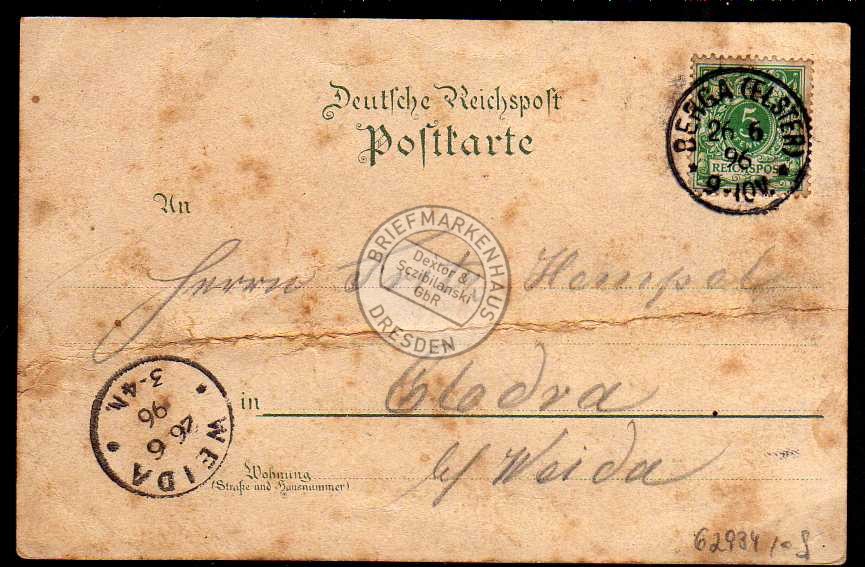 Deutsche Reichspost
Postkarte
BERGA (ELSTER)
26. 6
96
9-10V.
5
REICHSPOST
An
BRIEFMARKENHAUS
Dextor &
Sczibilanski
GbR
DRESDEN
Herrn Hempel
in
b/ Weida
WEIDA
26
6
96
3-4N.
Wohnung
(Straße und Hausnummer)
62934